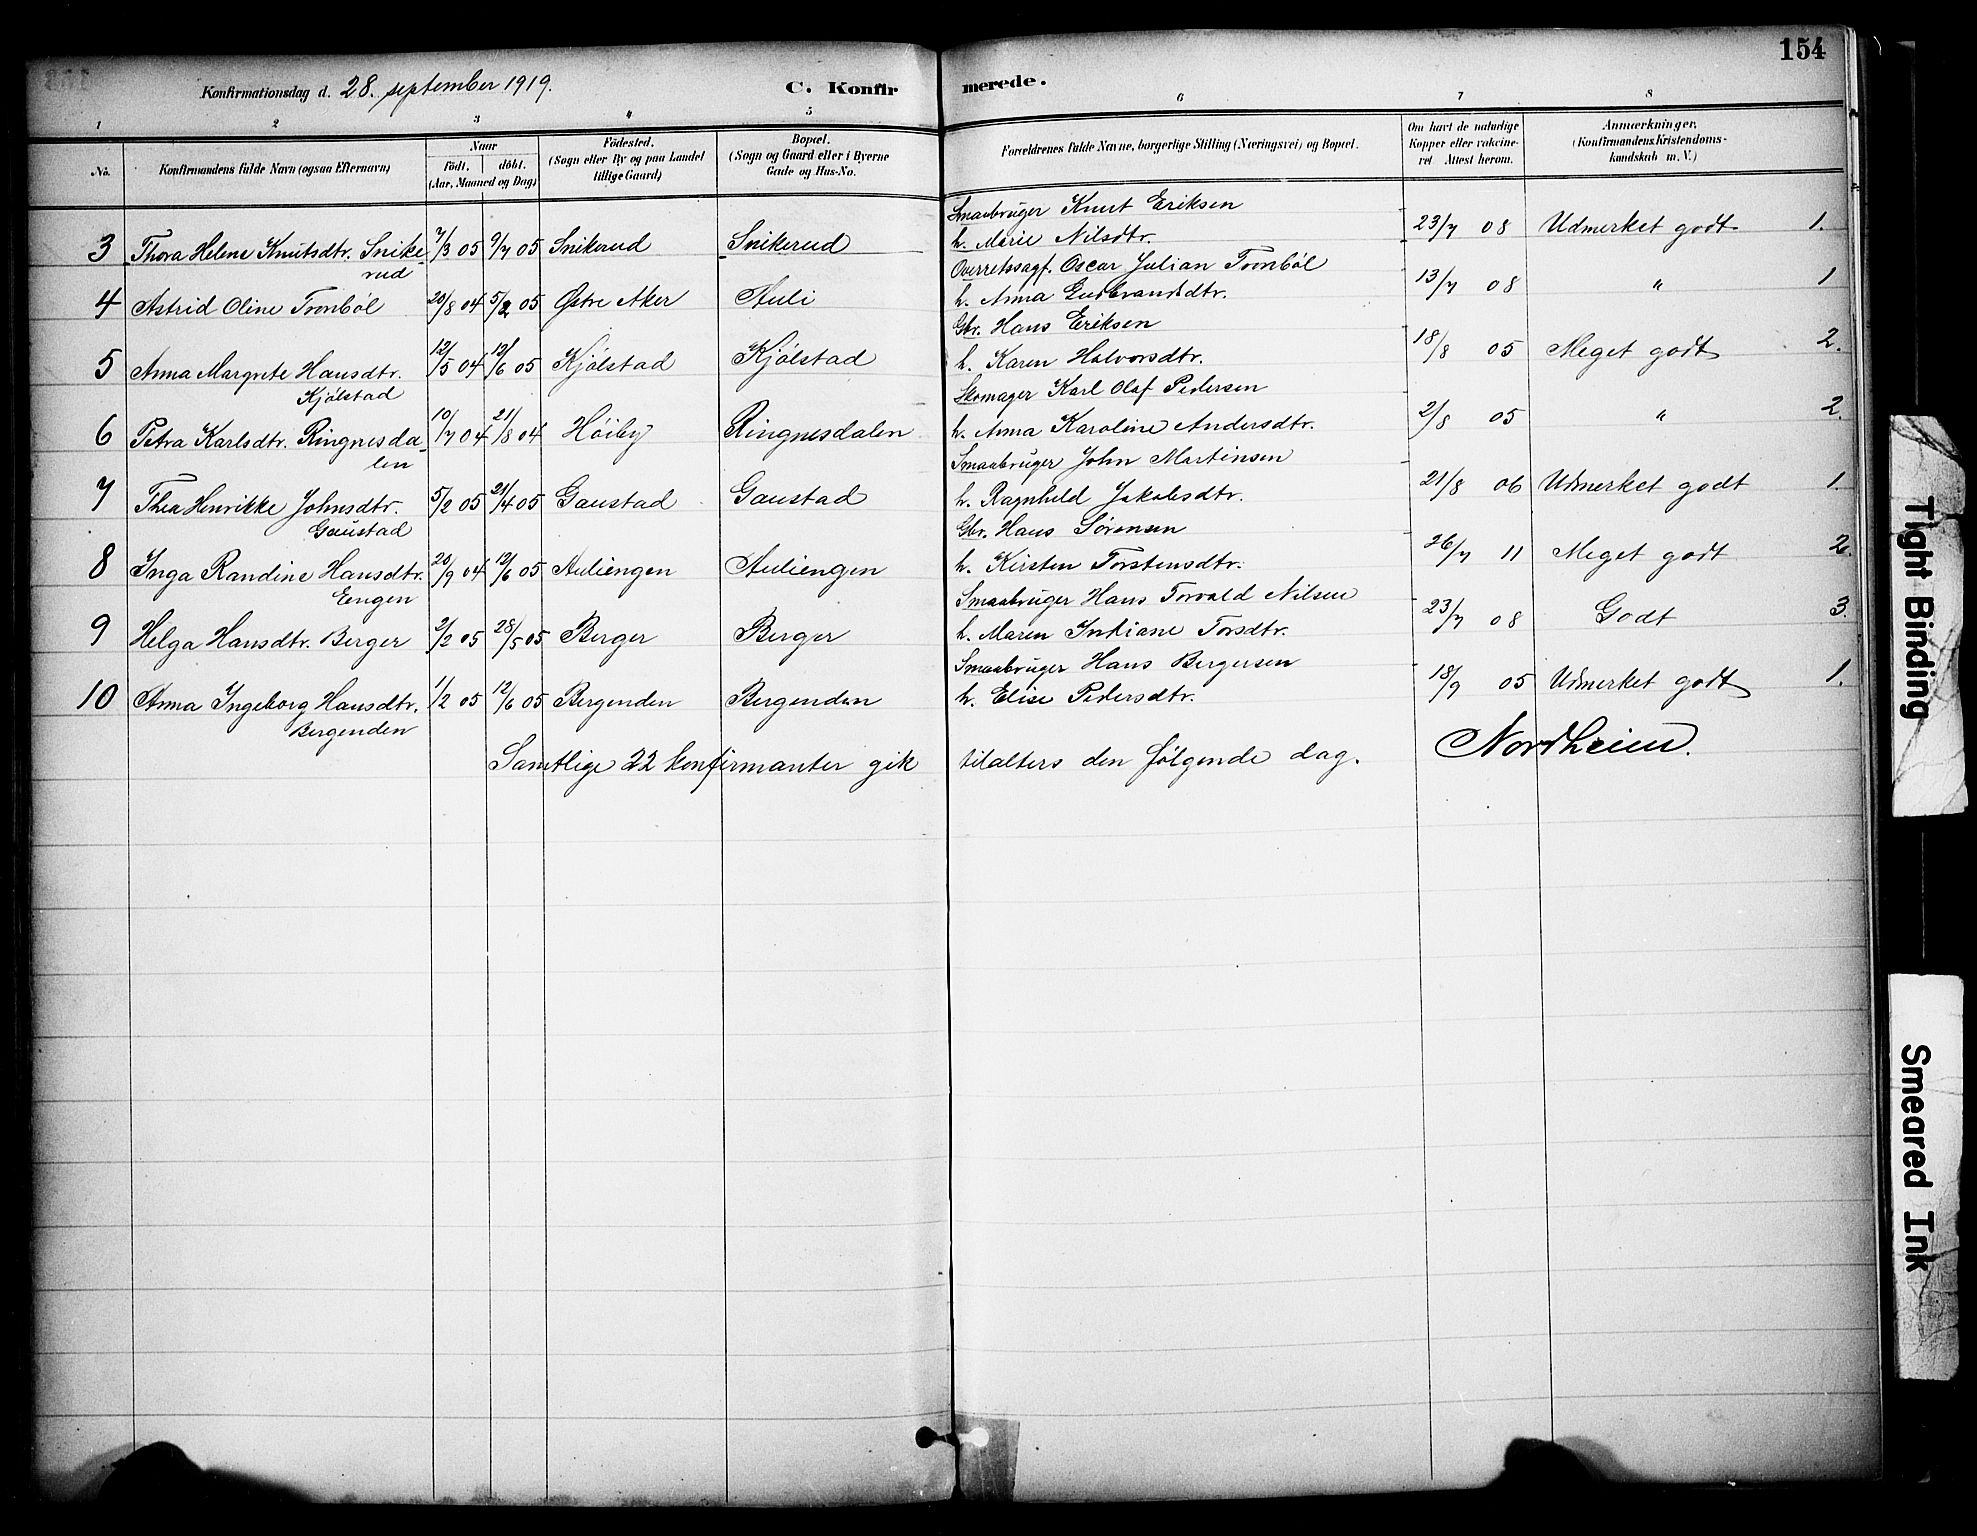 154
Konfirmationsdag d. 28. september 1919. C. Konfirmerede.
1 2 3 4 5 6 7 8
No. Konfirmandens fulde Navn (ogsaa Efternavn)
Naar
födt. döbt.
(Aar, Maaned og Dag)
Födested.
(Sogn eller By og paa Landet
tillige Gaard)
Bopæl.
(Sogn og Gaard eller i Byerne
Gade og Hus-No.
Forældrenes fulde Navne, borgerlige Stilling (Næringsvei) og Bopæl.
Om havt de naturlige
Kopper eller vakcine-
ret Attest herom.
Anmærkninger.
(Konfirmandens Kristendoms-
kundskab m. V.)
Smaabruger Knut Eriksen
3 Thora Helene Knutsdtr. Snike- 7/3 05 9/7 05 Snikerud Snikerud h. Marie Nilsdtr. 23/7 08 Udmerket godt 1.
rud
Overretssagf. Oscar Julian Tronbøl
4 Astrid Oline Tronbøl 20/8 04 5/2 05 Østre Aker Auli h. Anna Gudbrandsdtr. 13/7 08 " 1
Gbr. Hans Eriksen
5 Anna Margrete Hansdtr. 12/5 04 12/6 05 Kjølstad Kjølstad h. Karen Halvorsdtr. 18/8 05 Meget godt 2.
Kjølstad
Skomager Karl Olaf Pedersen
6 Petra Karlsdtr. Ringnesda- 10/7 04 21/8 04 Høiby Ringnesdalen h. Anna Karoline Andersdtr. 2/8 05 " 2.
len
Smaabruger John Martinsen
7 Thea Henrikke Johnsdtr. 5/2 05 24/4 05 Gaustad Gaustad h. Ragnhild Jakobsdtr. 21/8 06 Udmerket godt 1.
Gaustad
Gbr. Hans Sørensen
8 Inga Randine Hansdtr. 20/9 04 12/6 05 Auliengen Auliengen h. Kirsten Torstensdtr. 26/7 11 Meget godt 2.
Eengen
Smaabruger Hans Torvald Nilsen
9 Helga Hansdtr. Berger 2/2 05 28/5 05 Berger Berger h. Maren Intiane Torsdtr. 23/7 08 Godt 3.
Smaabruger Hans Bergersen
10 Anna Ingeborg Hansdtr. 1/2 05 12/6 05 Bergenden Bergenden h. Elise Pedersdtr. 18/9 05 Udmerket godt 1.
Bergenden
Samtlige 22 konfirmanter gik tilalters den følgende dag. Nordheim.
Tight Binding
Smeared Ink